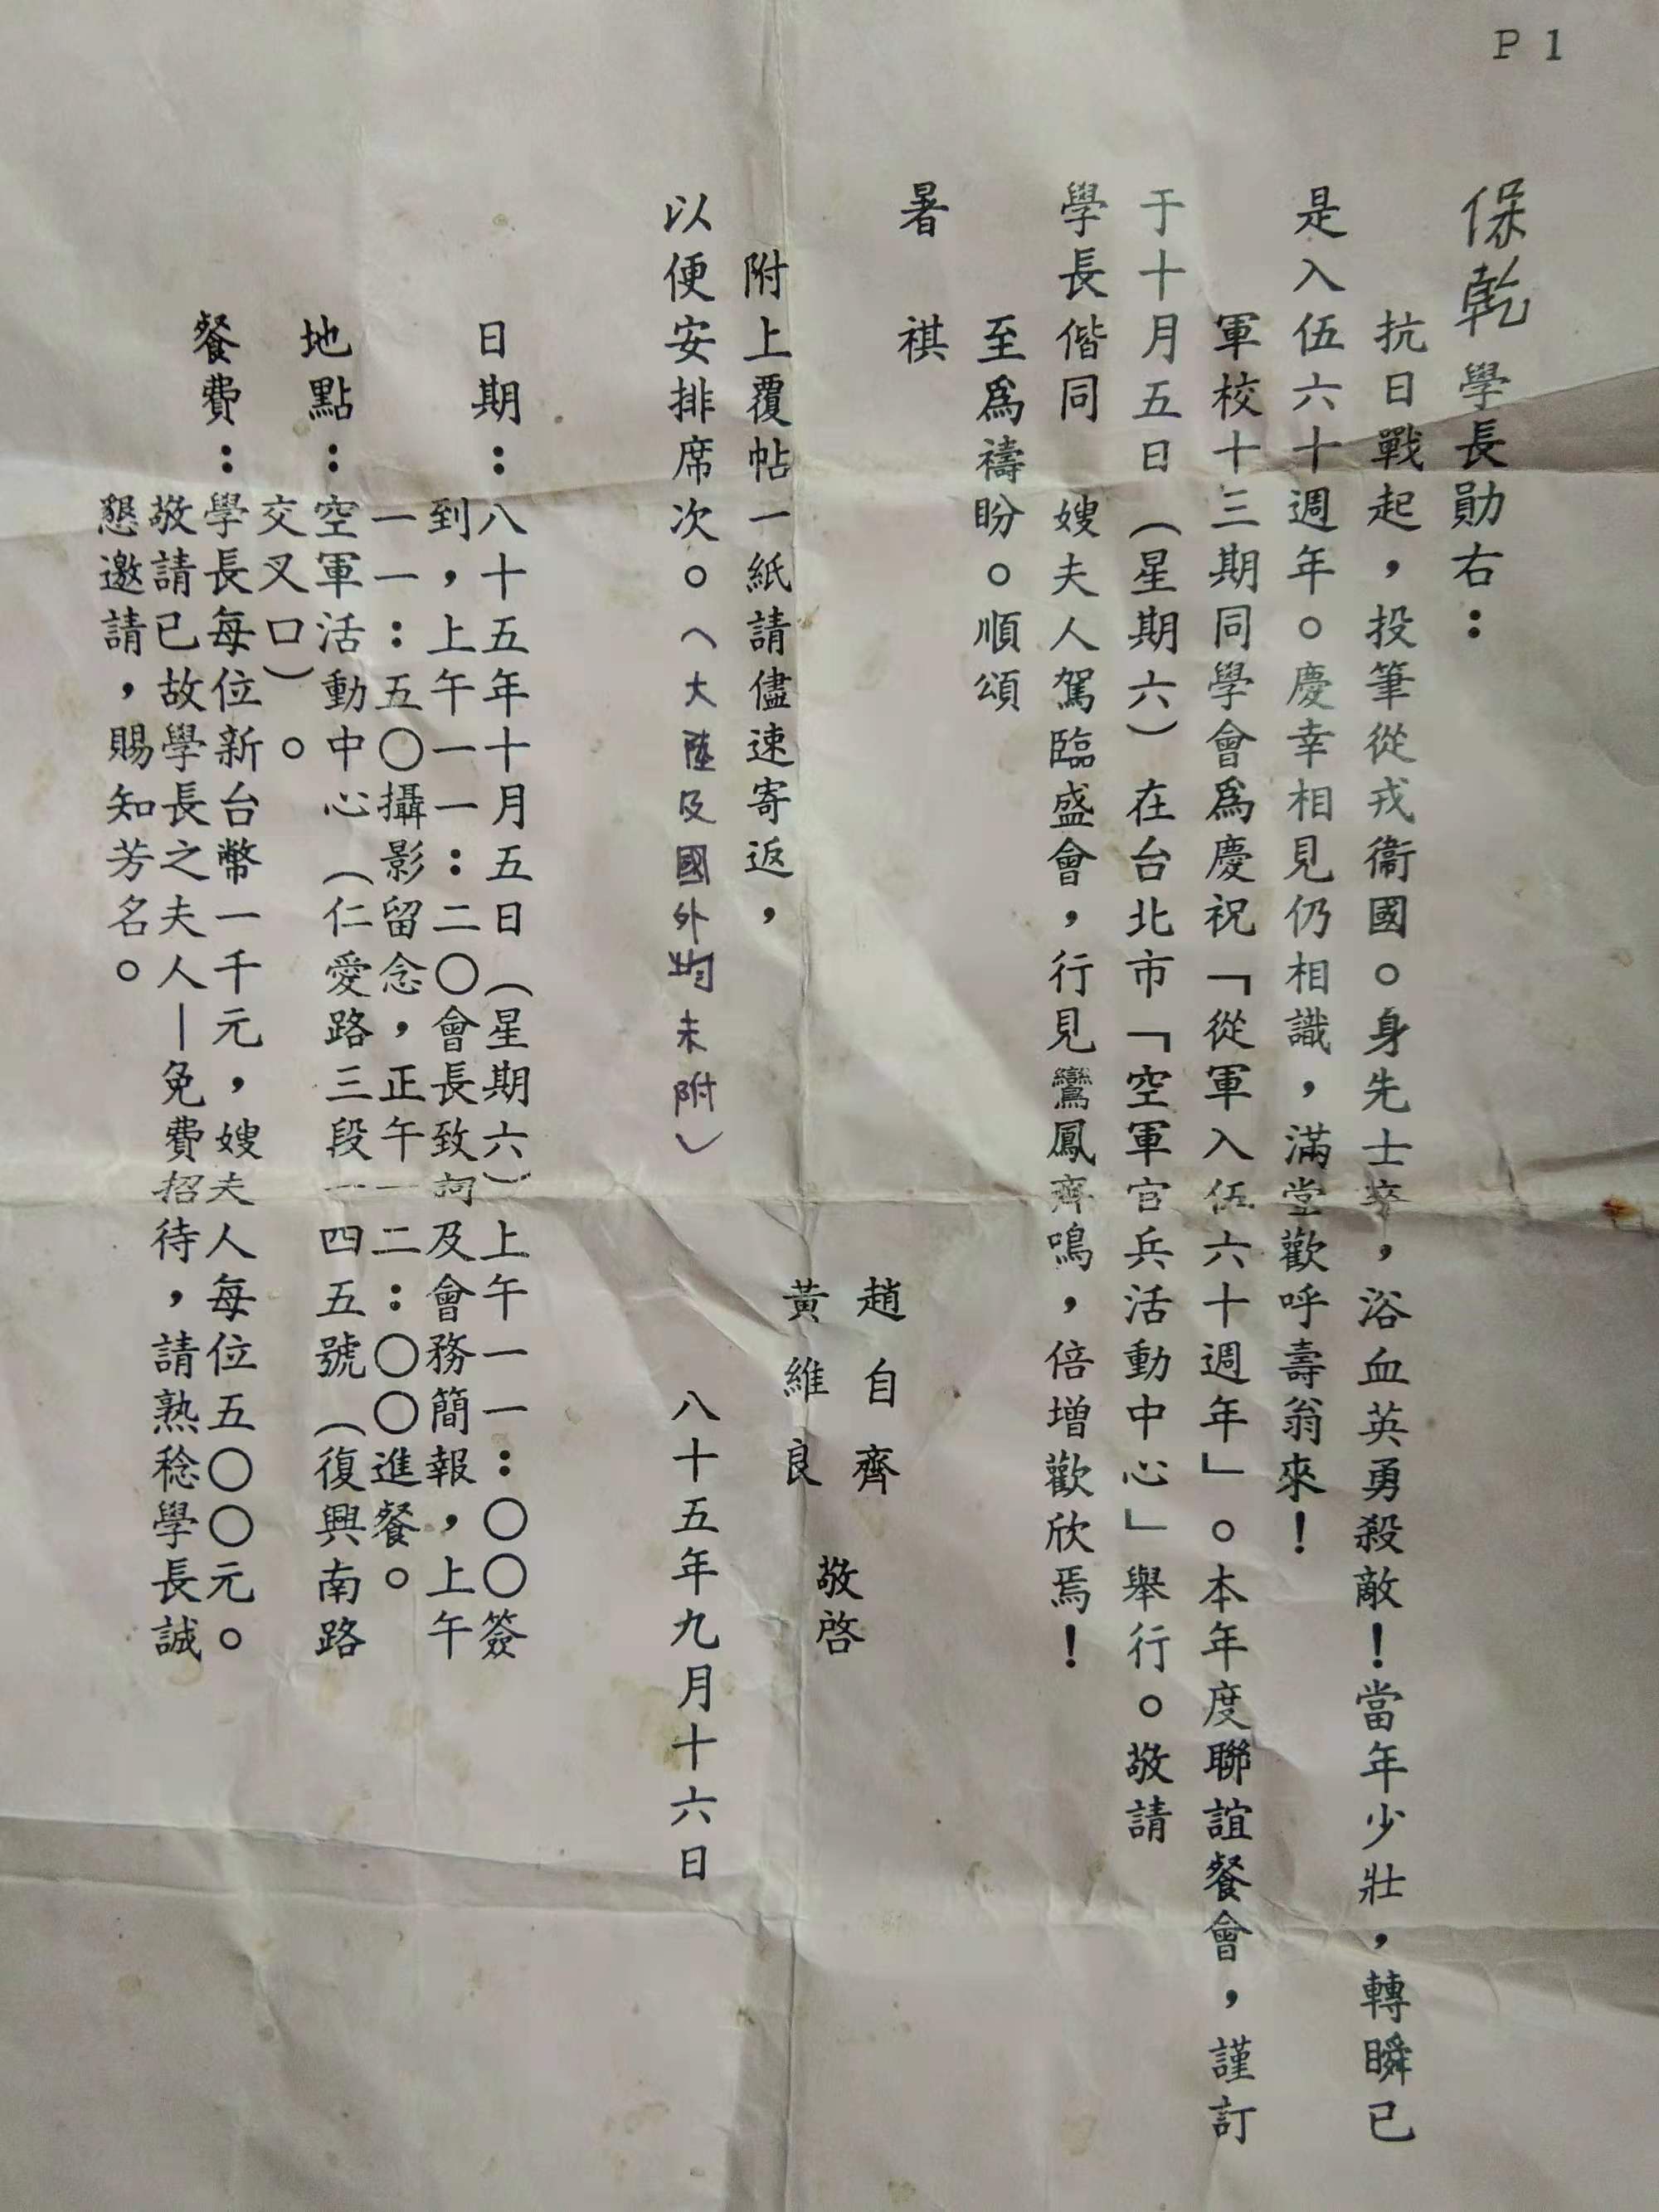 P 1
保乾學長勛右：
抗日戰起，投筆從戎衞國。身先士卒，浴血英勇殺敵！當年少壯，轉瞬已
是入伍六十週年。慶幸相見仍相識，滿堂歡呼壽翁來！
軍校十三期同學會爲慶祝「從軍入伍六十週年」。本年度聯誼餐會，謹訂
于十月五日（星期六）在台北市「空軍官兵活動中心」舉行。敬請
學長偕同　嫂夫人駕臨盛會，行見鸞鳳齊鳴，倍增歡欣焉！
至爲禱盼。順頌
暑　祺
趙自齊
黃維良
敬啓
附上覆帖一紙請儘速寄返，
以便安排席次。（大陸及國外均未附）
八十五年九月十六日
日期：八十五年十月五日（星期六）上午一一：〇〇簽
到，上午一一：二〇會長致詞及會務簡報，上午
一一：五〇攝影留念，正午一二：〇〇進餐。
地點：空軍活動中心（仁愛路三段一四五號（復興南路
交叉口）。
餐費：學長每位新台幣一千元，嫂夫人每位五〇〇元。
敬請已故學長之夫人—免費招待，請熟稔學長誠
懇邀請，賜知芳名。